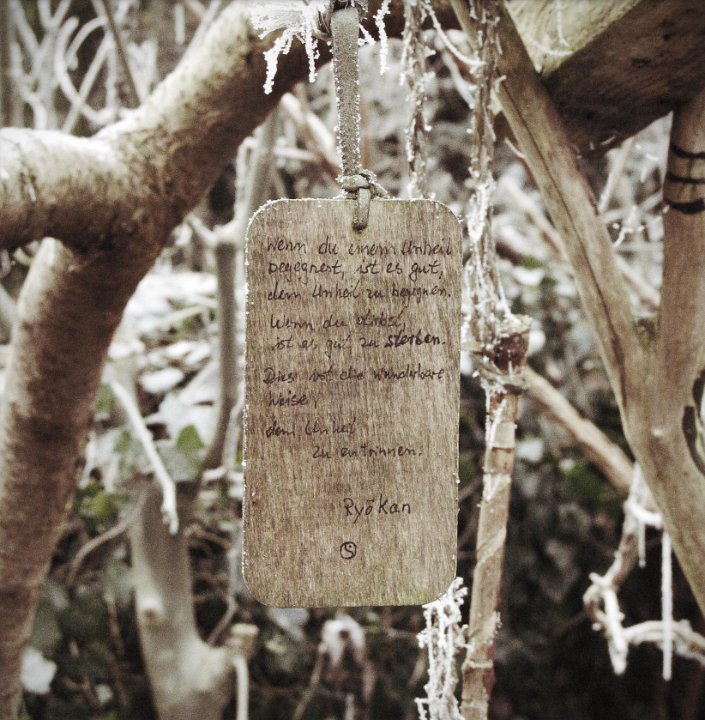 Wenn du einem Unheil
begegnest, ist es gut,
dem Unheil zu begegnen.
Wenn du stirbst,
ist es gut zu sterben.
Dies ist die wunderbare
Weise,
dem Unheil
zu entrinnen.
Ryōkan